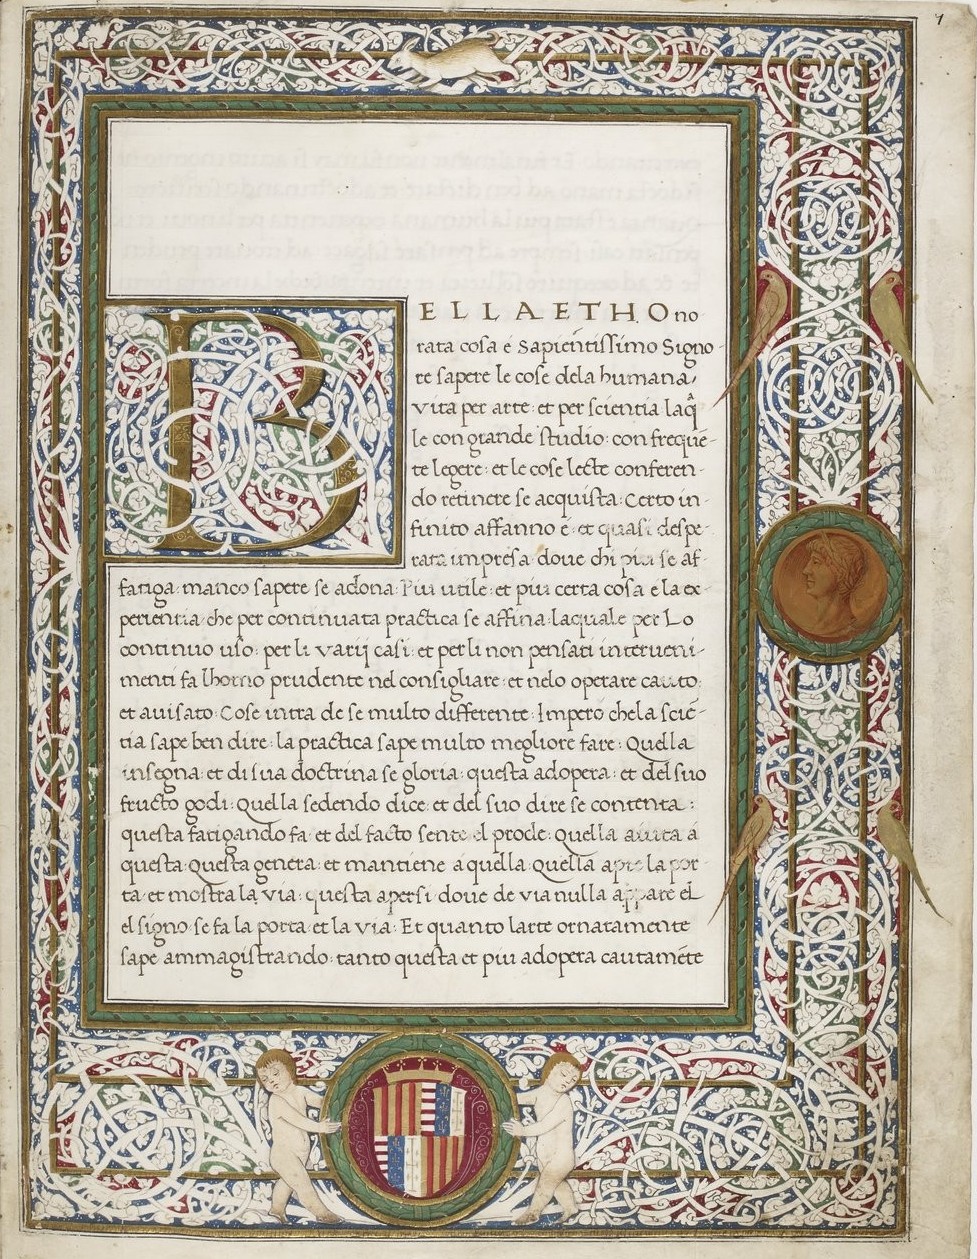 7
BELLA ET HOno
rata cosa é Sapientissimo Signo-
re sapere le cose dela humana,
vita per arte: et per scientia laq̃
le con grande studio: con freque-
te legere: et le cose lecte conferen-
do retinere se acquista: Certo in-
finito affanno é: et quasi despe-
rata impresa: doue chi piu se af
fatiga: manco sapere se adona: Piu utile: et piu certa cosa e la ex-
perientia: che per continuata practica se affina: laquale per Lo
continuo uso: per li varij casi: et per li non pensati interueni-
menti fa lhomo prudente nel consigliare: et nelo operare cauto:
et auisato: Cose intra de se multo differente: Imperò che la sciē-
tia sape ben dire: la practica sape multo megliore fare: Quella
insegna: et di sua doctrina se gloria: questa adopera: et del suo
fructo godi: Quella sedendo dice: et del suo dire se contenta:
questa fatigando fa: et del facto sente el prode: Quella aiuta á
questa: Questa genera: et mantiene á quella: Quella apre la por-
ta: et mostra la via: questa apersi: doue de via nulla appare el
el signo: se fa la porta: et la via: Et quanto larte ornatamente
sape ammagistrando: tanto questa et piu adopera cautamēte